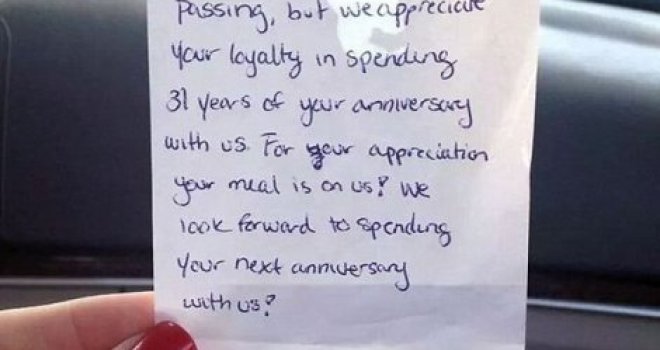 passing, but we appreciate
your loyalty in spending
31 years of your anniversary
with us. For your appreciation
your meal is on us! We
look forward to spending
your next anniversary
with us!